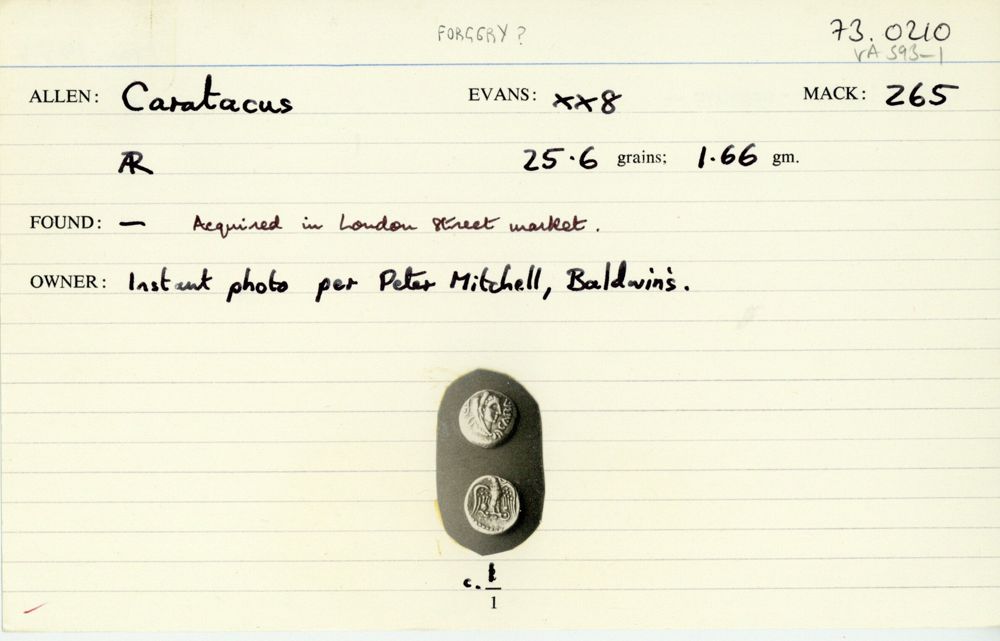 FORGERY?
73.0210
VA 593-1
ALLEN: Caratacus EVANS: xx8 MACK: 265
AR 25.6 grains; 1.66 gm.
FOUND: — Acquired in London Street market.
OWNER: Instant photo per Peter Mitchell, Baldwin's.
CARA
c. 1
1